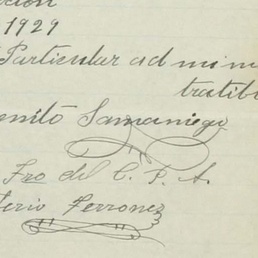 ción
1929
Particular admini
tratibo
enito Samaniego
Fro del C. P. A.
terio Perronez